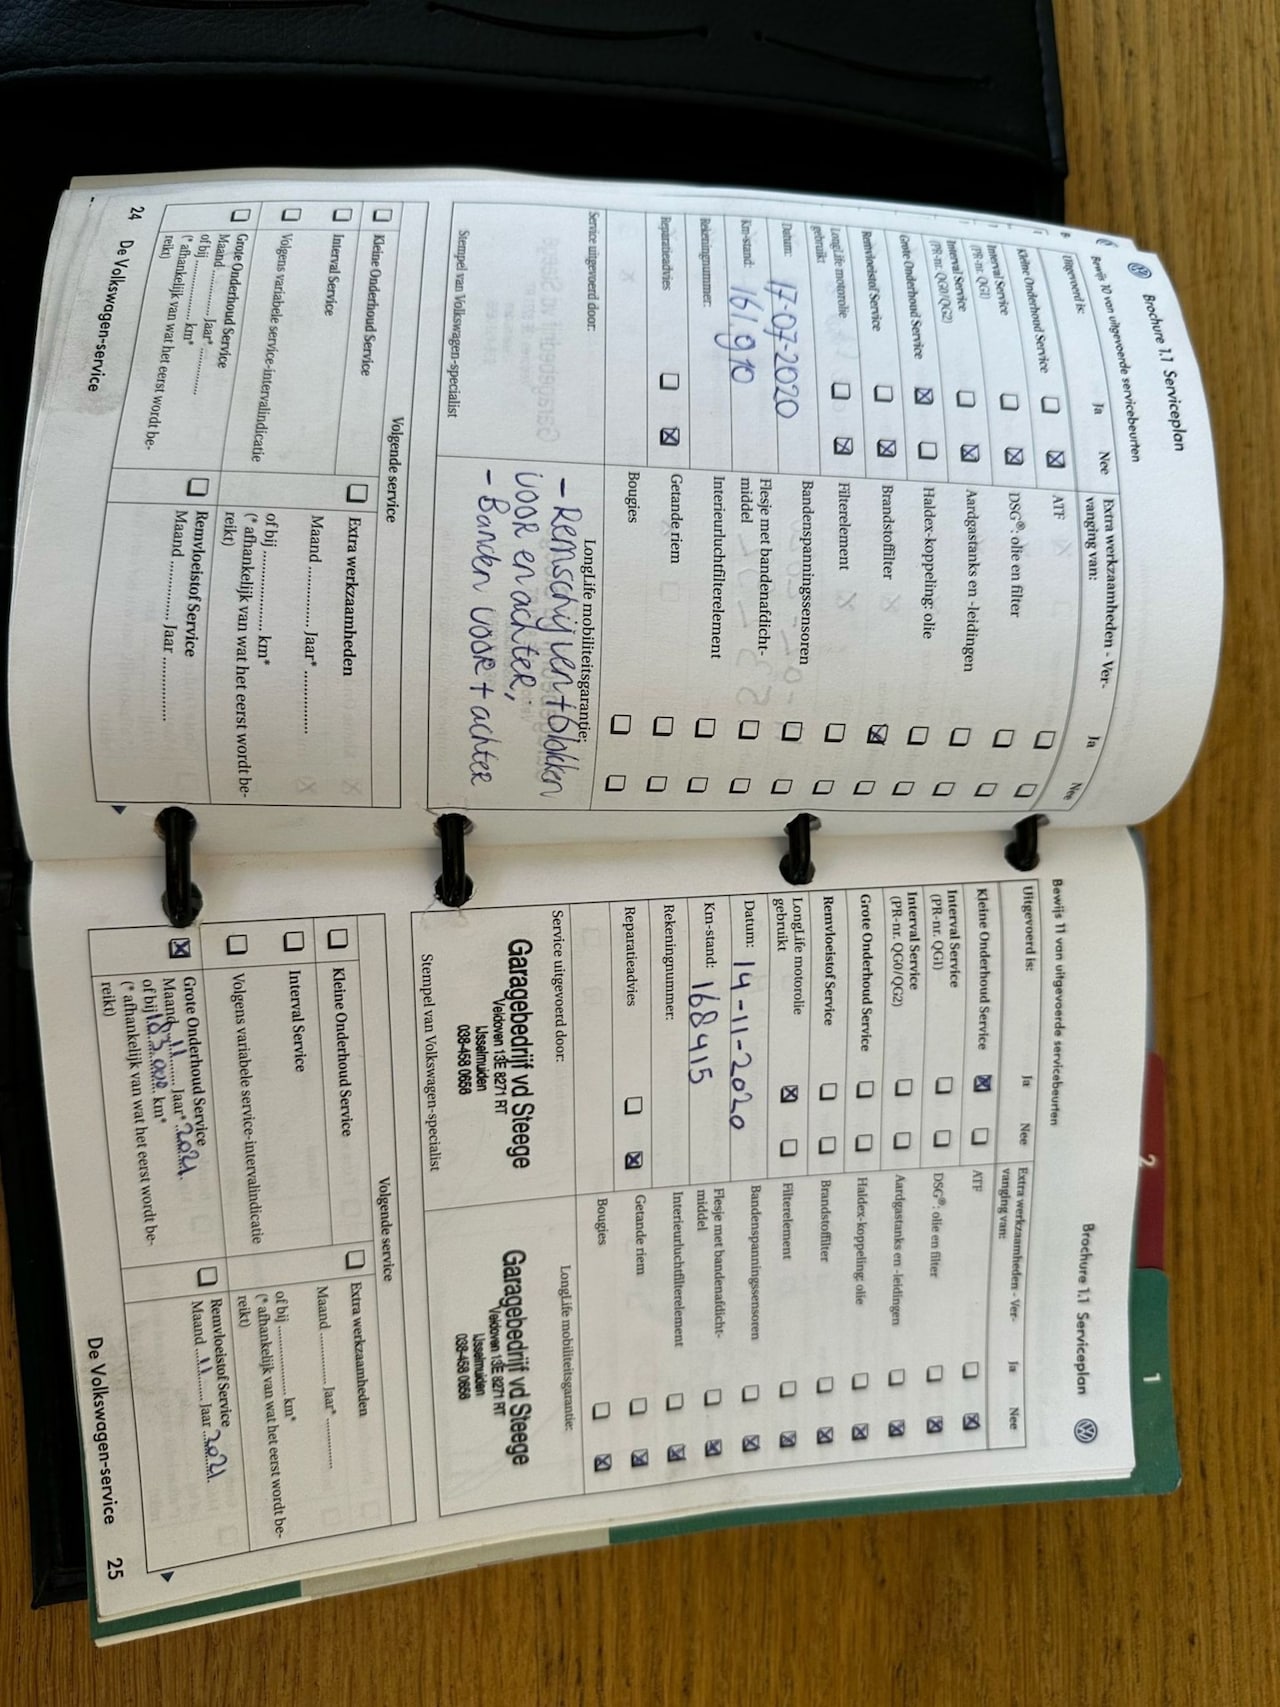 Brochure 1.1 Serviceplan
Bewijs 10 van uitgevoerde servicebeurten
Uitgevoerd is:
Ja
Nee
Kleine Onderhoud Service
Interval Service
(PR-nr. QG1)
Interval Service
(PR-nr. QG0/QG2)
Grote Onderhoud Service
Remvloeistof Service
LongLife motorolie
gebruikt
Datum: 17-07-2020
Km-stand: 161.910
Rekeningnummer:
Reparatieadvies
Service uitgevoerd door:
Stempel van Volkswagen-specialist
Extra werkzaamheden - Ver-
vanging van:
Ja
Nee
ATF
DSG®: olie en filter
Aardgastanks en -leidingen
Haldex-koppeling: olie
Brandstoffilter
Filterelement
Bandenspanningssensoren
Flesje met bandenafdicht-
middel
Interieurluchtfilterelement
Getande riem
Bougies
LongLife mobiliteitsgarantie:
- Remschijven + blokken
voor en achter,
- Banden voor + achter
Volgende service
Kleine Onderhoud Service
Interval Service
Volgens variabele service-intervalindicatie
Grote Onderhoud Service
Maand ............ Jaar* ............
of bij ................ km*
(* afhankelijk van wat het eerst wordt be-
reikt)
Extra werkzaamheden
Maand ............ Jaar* ............
of bij ................ km*
(* afhankelijk van wat het eerst wordt be-
reikt)
Remvloeistof Service
Maand ............ Jaar ............
24 De Volkswagen-service
Brochure 1.1 Serviceplan
Bewijs 11 van uitgevoerde servicebeurten
Uitgevoerd is:
Ja
Nee
Kleine Onderhoud Service
Interval Service
(PR-nr. QG1)
Interval Service
(PR-nr. QG0/QG2)
Grote Onderhoud Service
Remvloeistof Service
LongLife motorolie
gebruikt
Datum: 14-11-2020
Km-stand: 168415
Rekeningnummer:
Reparatieadvies
Service uitgevoerd door:
Garagebedrijf vd Steege
Veldoven 13E 8271 RT
IJsselmuiden
038-458 0658
Stempel van Volkswagen-specialist
Extra werkzaamheden - Ver-
vanging van:
Ja
Nee
ATF
DSG®: olie en filter
Aardgastanks en -leidingen
Haldex-koppeling: olie
Brandstoffilter
Filterelement
Bandenspanningssensoren
Flesje met bandenafdicht-
middel
Interieurluchtfilterelement
Getande riem
Bougies
LongLife mobiliteitsgarantie:
Garagebedrijf vd Steege
Veldoven 13E 8271 RT
IJsselmuiden
038-458 0658
Volgende service
Kleine Onderhoud Service
Interval Service
Volgens variabele service-intervalindicatie
Grote Onderhoud Service
Maand 11 Jaar* 2021
of bij 183.000 km*
(* afhankelijk van wat het eerst wordt be-
reikt)
Extra werkzaamheden
Maand ............ Jaar* ............
of bij ................ km*
(* afhankelijk van wat het eerst wordt be-
reikt)
Remvloeistof Service
Maand 11 Jaar 2021
De Volkswagen-service 25
2
1